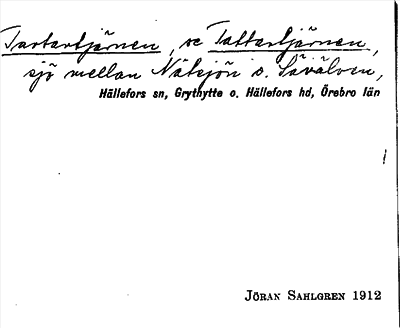 Tartartjärnen, se Tattartjärnen,
sjö mellan Nätsjön o. Sävälven,
Hällefors sn, Grythytte o. Hällefors hd, Örebro län
JÖRAN SAHLGREN 1912